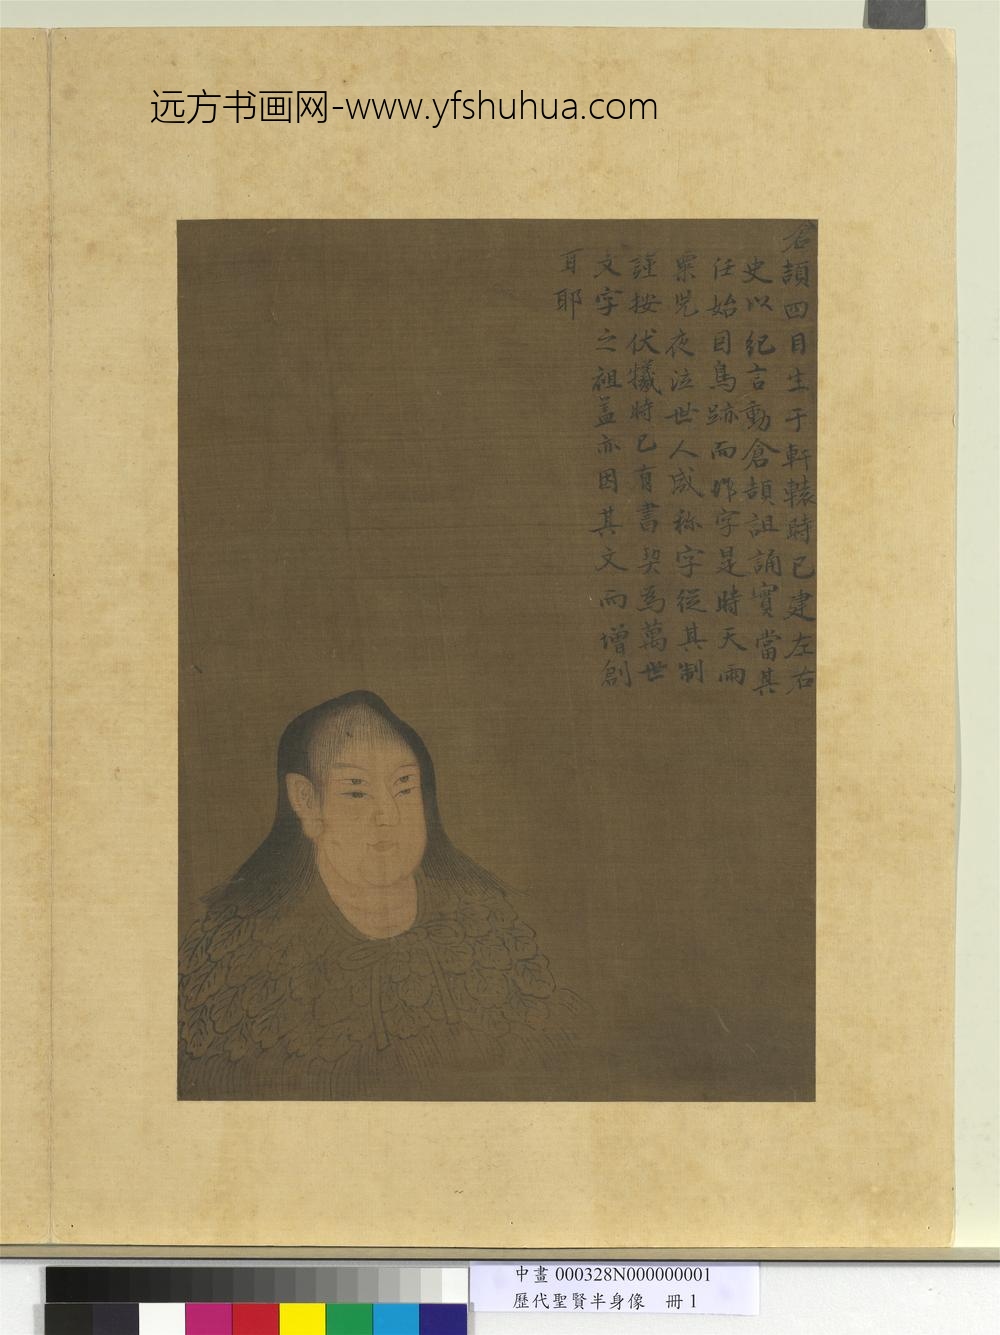 远方书画网-www.yfshuhua.com
倉頡四目生于軒轅時已建左右
史以紀言動倉頡詛誦實當其
任始因鳥跡而作字是時天雨
粟児夜泣世人咸称字從其制
謹按伏犧時已有書契為萬世
文字之祖盖亦因其文而增創
耳耶
中畫 000328N000000001
歷代聖賢半身像 冊 1